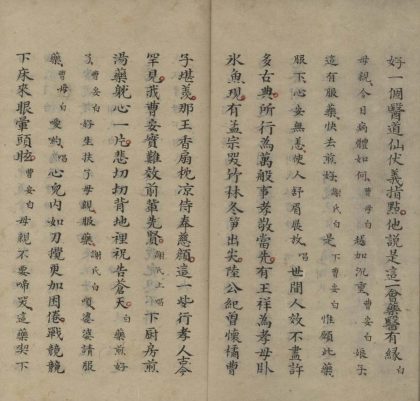 好一個醫道仙伏義指點他說是這一會藥醫有緣白
母親今日病體如何曹母白越加沉重曹安白娘子
這有服藥快去煎好謝氏白是下曹安白惟願此藥
服下心安無恙使人舒眉展放唱世間人效不盡許
多古典所行為萬般事孝敬當先有王祥為孝母臥
氷魚現有孟宗哭竹林冬笋出尖陸公紀曾懷橘曹
子堪羡那王香扇枕凉侍奉慈顔這一些行孝人古今
罕見我曹安實難效前輩先賢謝氏上唱下厨房煎
湯藥躭心一片悲切切背地裡祝告蒼天白藥煎好
了曹安白好生扶了母親服藥謝氏白噯婆婆請服
藥曹母白噯約唱心兒内如刀攪更加困倦戰兢兢
下床來眼暈頭眩曹安白母親不要啼哭這藥喫下